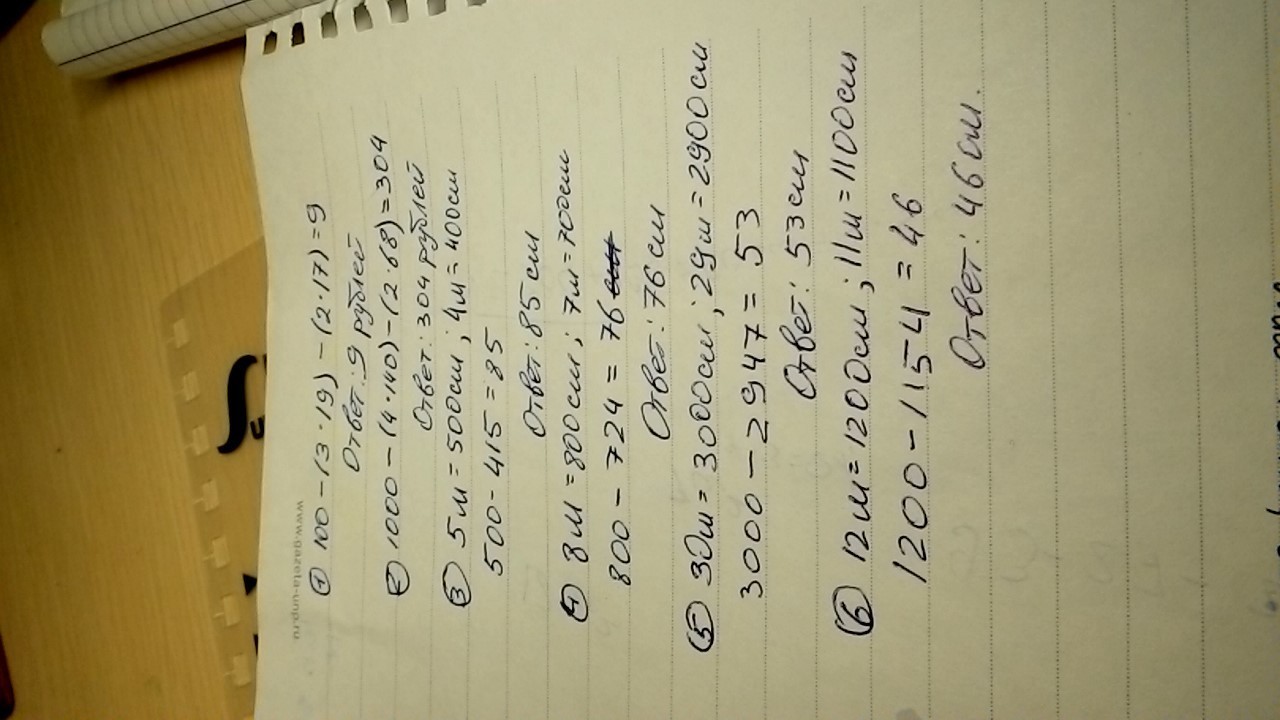 www.gazeta-unp.ru
① 100-(3·19)-(2·17)=9
Ответ: 9 рублей
② 1000-(4·140)-(2·68)=304
Ответ: 304 рублей
③ 5м=500см; 4м=400см
500-415=85
Ответ: 85 см
④ 8м=800см; 7м=700см
800-724=76
Ответ: 76 см
⑤ 30м=3000см; 29м=2900см
3000-2947=53
Ответ: 53 см
⑥ 12м=1200см; 11м=1100см
1200-1154=46
Ответ: 46 см.